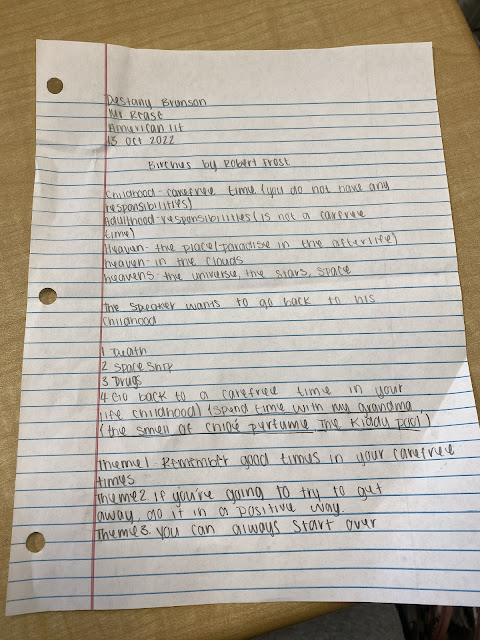 Destany Brunson
Mr Rease
American lit
13 Oct 2022
Birches by Robert Frost
Childhood- carefree time (you do not have any
responsibilities)
Adulthood- responsibilities (is not a carefree
time)
Heaven- the place/paradise in the afterlife)
heaven- in the clouds
heavens- the universe, the stars, space
The speaker wants to go back to his
Childhood
1 Death
2 Space Ship
3 Drugs
4 Go back to a carefree time in your
life childhood) (spend time with my grandma,
(the smell of Chloé perfume The Kiddy pool)
Theme1- Remember good times in your carefree
times
Theme2. If you're going to try to get
away, do it in a positive way.
Theme3. You can always start over